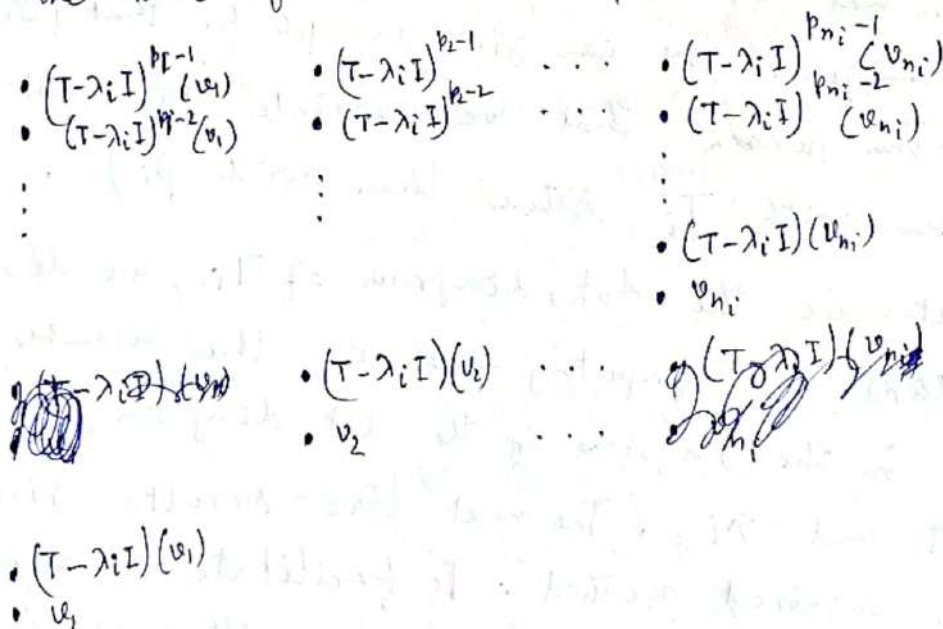 • (T-λiI)^{p1-1}(v1) • (T-λiI)^{p2-1} · · · • (T-λiI)^{pni-1}(vni)
• (T-λiI)^{p1-2}(v1) • (T-λiI)^{p2-2} · · · • (T-λiI)^{pni-2}(vni)
⋮ ⋮ ⋮
• (T-λiI)(vni)
• vni
• (T-λiI)(v2) · · ·
• v2 · · ·
• (T-λiI)(v1)
• v1